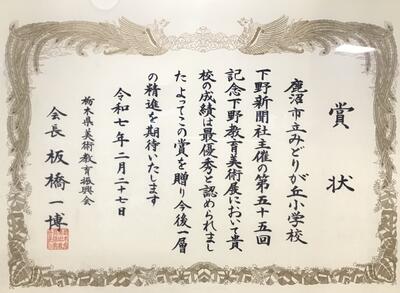 賞状
鹿沼市立みどりが丘小学校
下野新聞社主催の第五十五回
記念下野教育美術展において貴
校の成績は最優秀と認められまし
たよってこの賞を贈り今後一層
の精進を期待いたします
令和七年二月二十七日
栃木県美術教育振興会
会長 板橋一博